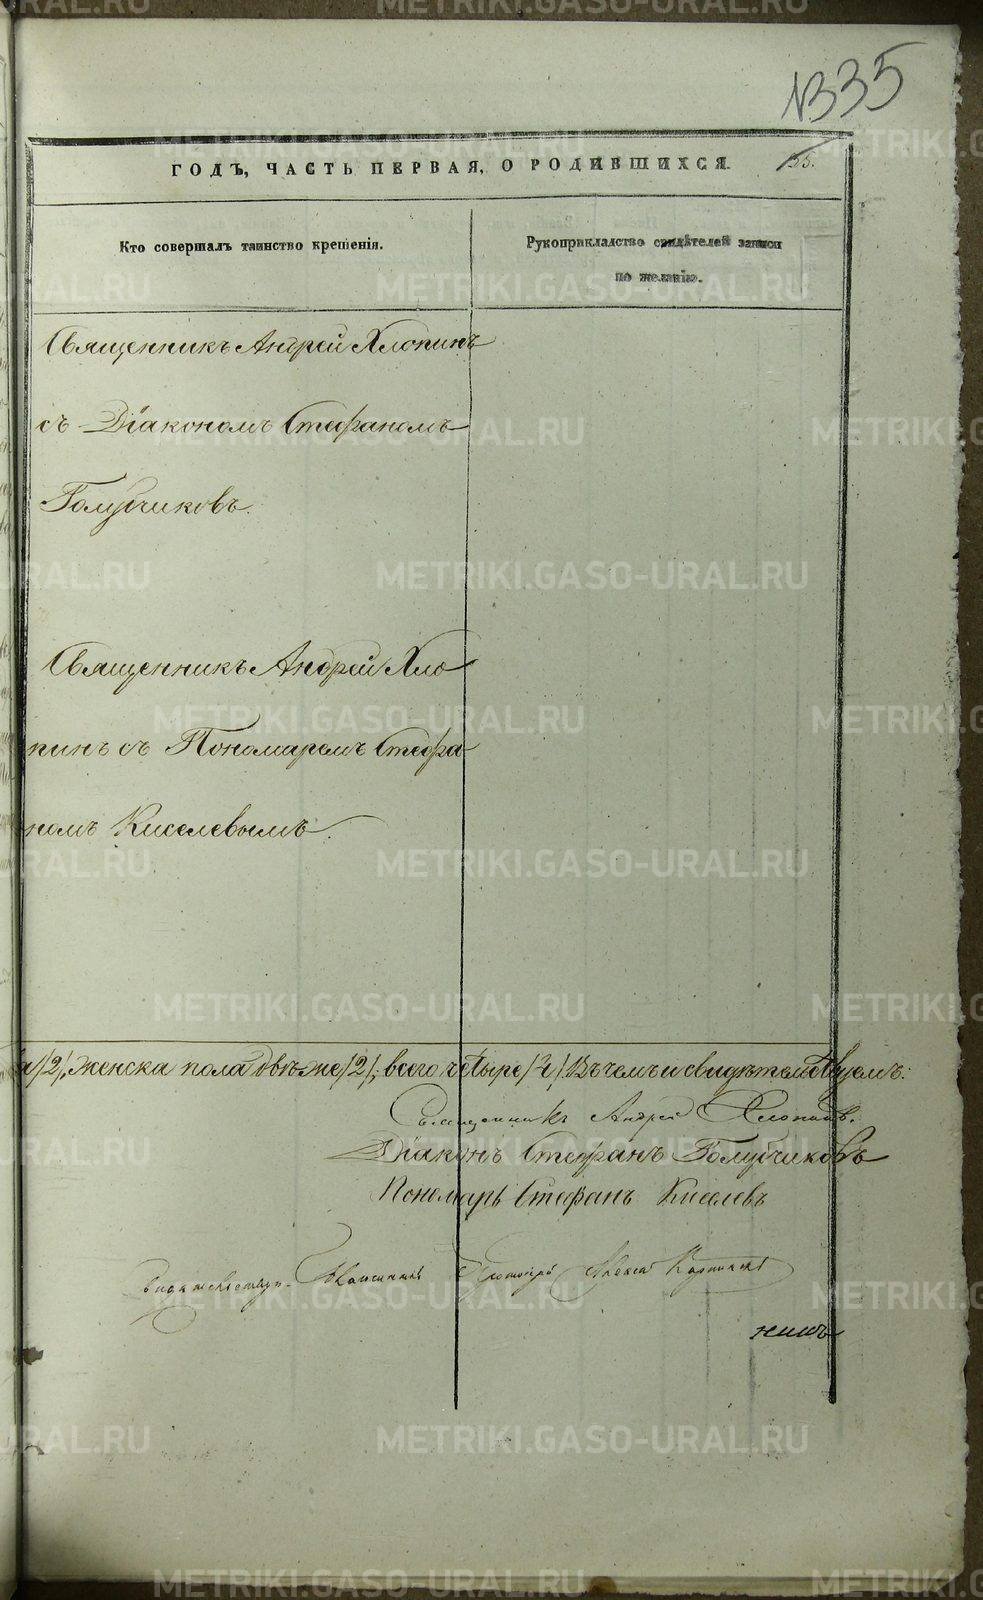 335
55.
ГОДЪ, ЧАСТЬ ПЕРВАЯ, О РОДИВШИХСЯ.
Кто совершалъ таинство крещенія.
Рукоприкладство свидѣтелей записи
по желанію.
Священникъ Андрей Хлопинъ
съ Діакономъ Стефаномъ
Голубчиковъ.
Священникъ Андрей Хло
пинъ съ Пономаремъ Стефа
номъ Киселевымъ.
/2/, женска пола двѣ же /2/, всего четыре /4/ Въ чемъ и свидѣтельствуемъ:
Священникъ Андрей Хлопинъ.
Діаконъ Стефанъ Голубчиковъ
Пономарь Стефанъ Киселевъ
Протоіерей Алексій Карпинскій
METRIKI.GASO-URAL.RU